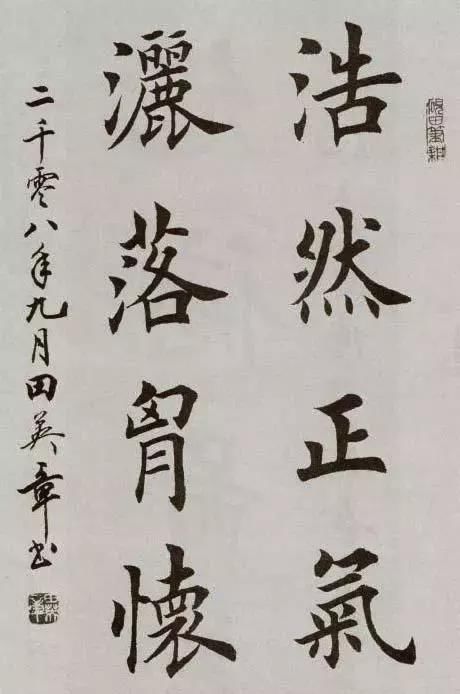 浩然正氣
灑落胷懷
二千零八年九月田英章书